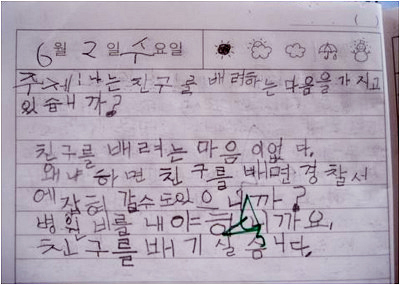 6월 2일 수요일
주제: 나는 친구를 배려하는 마음을 가지고
있습니까?
친구를 배려는 마음이 없다.
왜냐하면 친구를 배면 경찰서
에 잡혀 갈수도 있으니까?
병원비를 내야 하니까요.
친구를 배기 실슴니다.